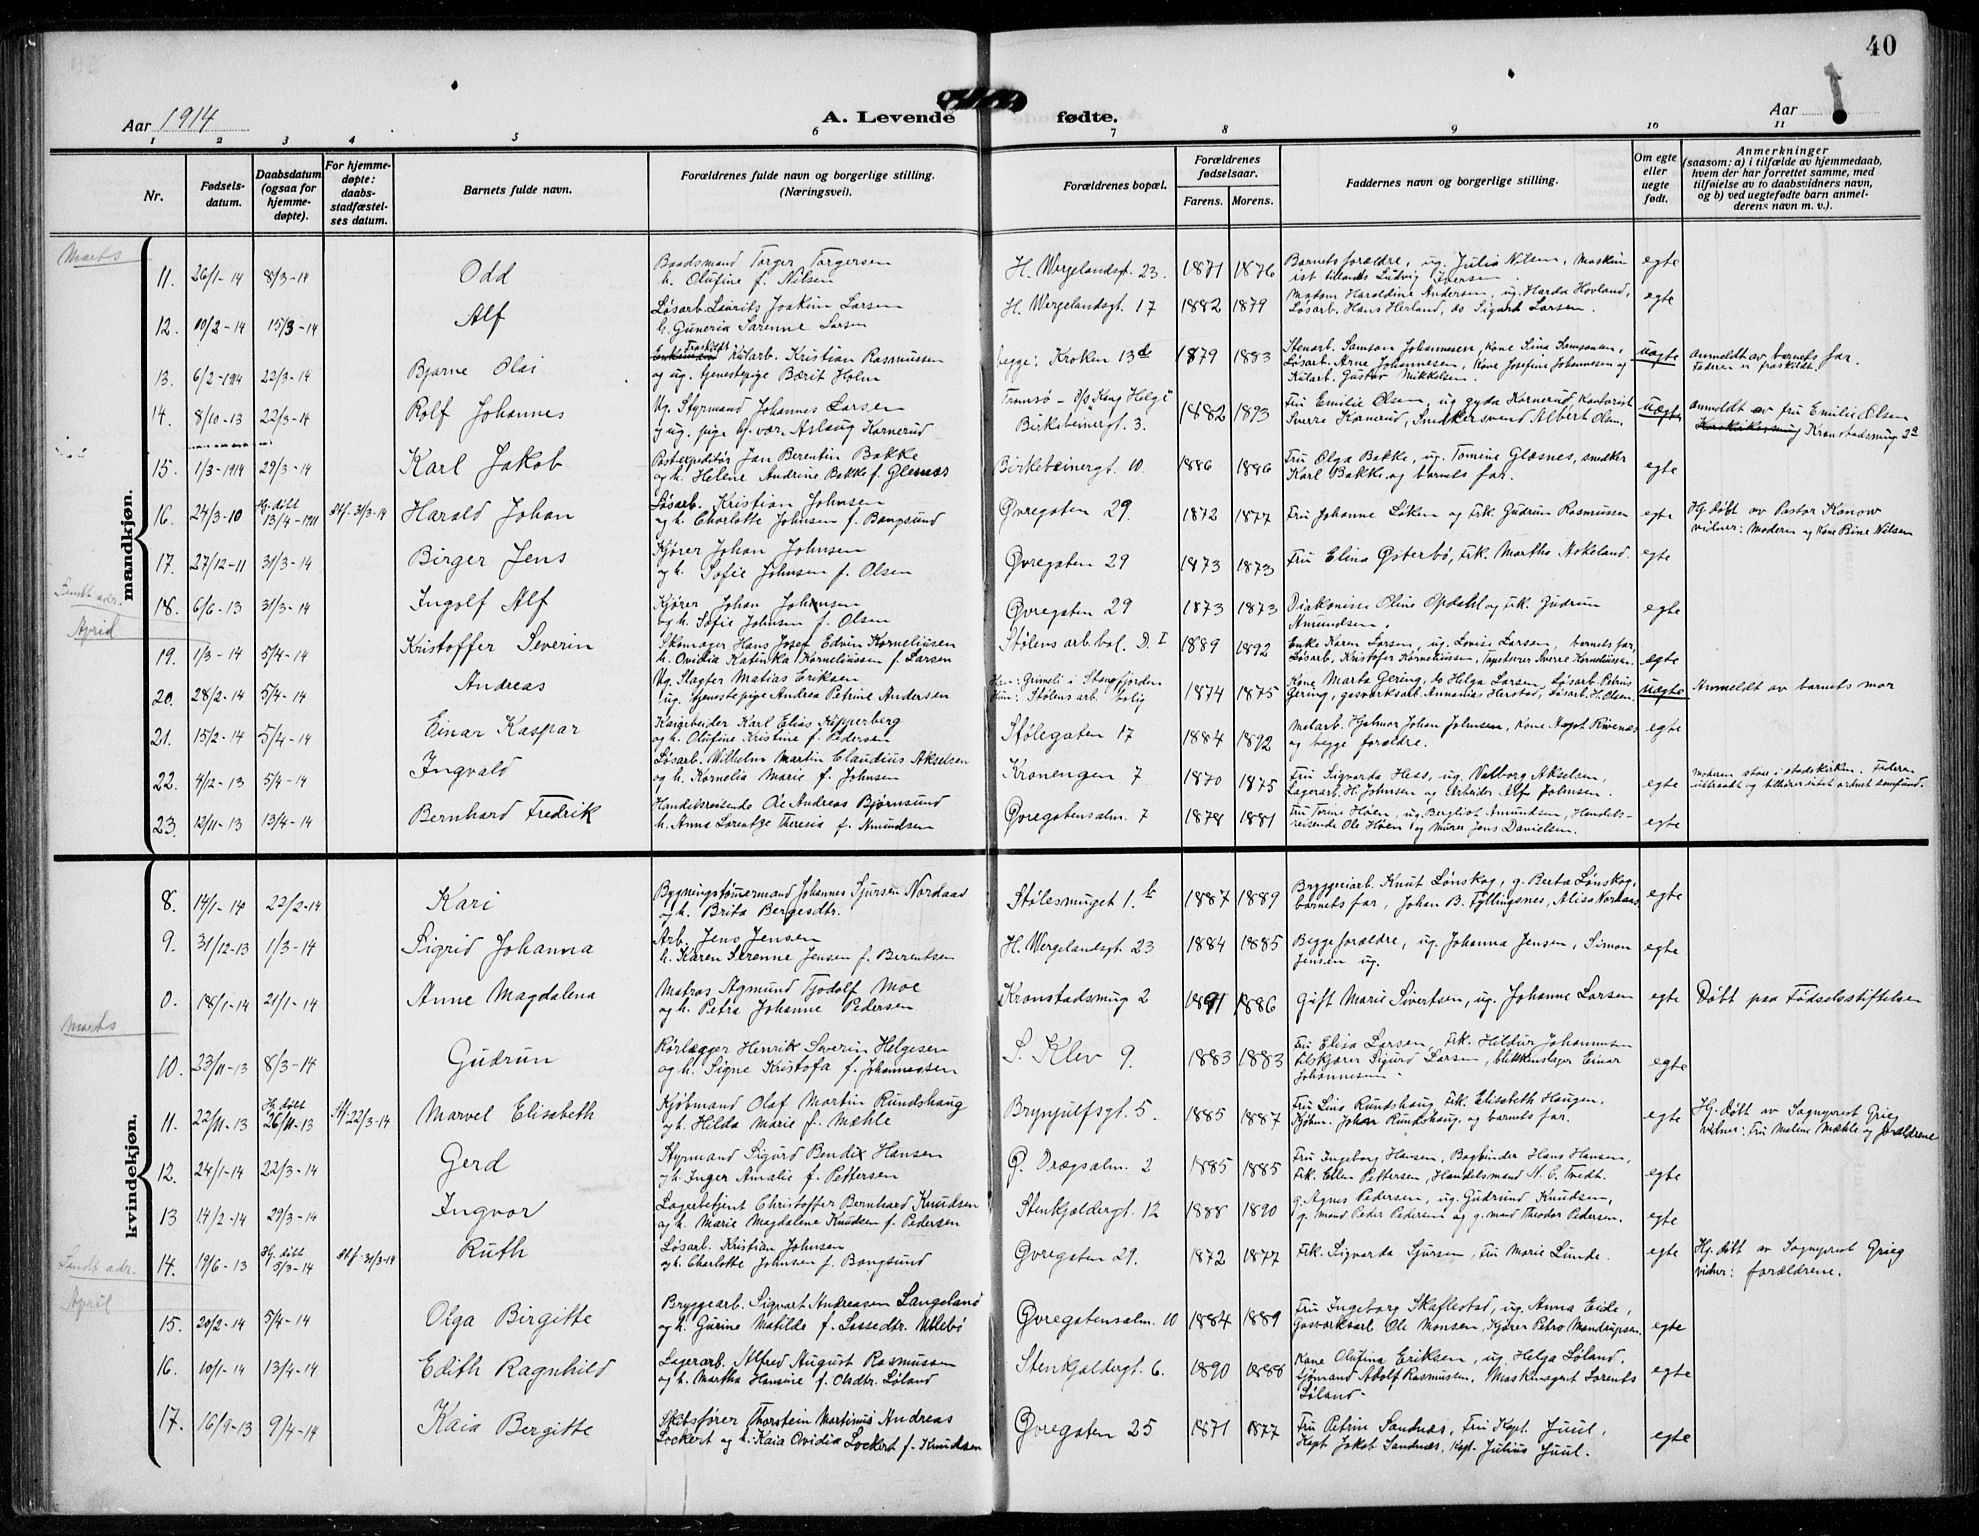 40
Aar 1914
A. Levende fødte.
Aar
1 2 3 4 5 6 7 8 9 10 11
Nr.
Fødsels-datum.
Daabsdatum (ogsaa for hjemme-døpte).
For hjemme-døpte: daabs-stadfæstel-ses datum.
Barnets fulde navn.
Forældrenes fulde navn og borgerlige stilling. (Næringsvei).
Forældrenes bopæl.
Forældrenes fødselsaar.
Farens. Morens.
Faddernes navn og borgerlige stilling.
Om egte eller uegte født.
Anmerkninger
(saasom: a) i tilfælde av hjemmedaab,
hvem der har forrettet samme, med
tilføielse av to daabsvidners navn,
og b) ved uegtefødte barn anmel-
derens navn m. v.).
Marts
mandkjøn.
11. 26/1-14 8/3-14 Odd
Baadsmand Torger Torgersen
h. Olufine f. Nilsen
H. Wergelandsgt. 23. 1871 1876
Barnets forældre, ug. Julia Nilsen, Maskin
ist tillands Ludvig Iversen
egte
12. 10/2-14 15/3-14 Alf
Løsarb. Laurits Joakim Larsen
h. Guneria Sarenne Larsen
H. Wergelandsgt. 17 1882 1879
Madam Haroldine Andersen, ug. Harda Hovland,
Løsarb. Hans Herland, do Sigurd Larsen.
egte
13. 6/2-1914 22/3-14 Bjarne Olai
Fraskildt Kularb. Kristian Rasmussen
og ug. tjenestepige Bærit Holm
begge: Kroken 13 de 1879 1883
Stenarb. Samson Johannesen, Kone Lina Samsonsen,
Løsarb. Arne Johannesen, Kone Josefine Johannesen og
Kularb. Gustav Mikkelsen.
uegte
Anmeldt av barnets far.
Faderen er fraskildt.
14. 8/10-13 22/3-14 Rolf Johannes
Ug. Styrmand Johannes Larsen
og ug. pige Aslaug Kornerud
Tromsø - D/s Kong Helge
Birkebeinergt. 3. 1882 1893
Fru Emilie Olsen, ug Gyda Kornerud, Kontorist
Sverre Kornerud, Snedkersvend Albert Olsen,
uegte
Anmeldt av fru Emilie Olsen
Kronstadsmug 2a
15. 1/3-1914 29/3-14 Karl Jakob
Postexpeditør Jan Berentin Bakke
og h. Helene Andrine Bakke f. Glesnæs
Birkebeinergt. 10. 1886 1886
Fru Olga Bakke, ug. Tomine Glæsnes, snedker
Karl Bakke og barnets far.
egte
16. 24/3-10 Hj. døbt 13/4-1911 Stf. 31/3-14 Harald Johan
Løsarb. Kristian Johnsen
og h. Charlotte Johnsen f. Bangsund
Øvregaten 29. 1872 1877
Fru Johanne Løken og Frk. Gudrun Rasmussen
egte
Hj. døbt av Pastor Konow
vidner: Moderen og Kone Bine Nilsen
17. 27/12-11 31/3-14 Birger Jens
Kjører Johan Johnsen
og h. Sofie Johnsen f. Olsen
Øvregaten 29 1873 1873
Fru Elina Østerbø, Frk. Martha Nokeland.
egte
Sendt adr.
18. 6/6-13 31/3-14 Ingolf Alf
Kjører Johan Johnsen
og h. Sofie Johnsen f. Olsen
Øvregaten 29 1873 1873
Diakonisse Oline Opdahl og Frk. Gudrun
Amundsen.
egte
April
19. 1/3-14 5/4-14 Kristoffer Severin
Skomager Hans Josef Edvin Korneliussen
h. Ovidia Katinka Korneliussen f. Larsen
Stølens arb.bol. D. I 1889 1892
Enke Karen Larsen, ug. Lovise Larsen, barnets far,
Løsarb. Kristofer Korneliussen, Tapetserer Sverre Korneliussen.
egte
20. 28/2-14 5/4-14 Andreas
Ug. Slagter Matias Eriksen
ug. tjenestepige Andrea Petrine Andersen
Han: Grimeli i Stangfjorden
Hun: Stølens arb. bolig 1874 1875
Kone Marta Gering, do Helga Larsen, Løsarb. Petrus
Gering, gasverksarb. Annanias Herstad, Løsarb. H. Olsen.
uegte
Anmeldt av barnets mor
21. 15/2-14 5/4-14 Einar Kaspar
Kaiarbeider Karl Elias Kipperberg
og h. Olufine Kristine f. Pedersen
Stølegaten 17 1884 1892
Matarb. Hjalmar Johan Johnsen, Kone Magot Rivenæs
og begge forældre.
egte
22. 4/12-13 5/4-14 Ingvald
Løsarb. Wilhelm Martin Claudius Akselsen
og h. Kornelia Marie f. Johnsen
Kronengen 7 1870 1875
Fru Sigvarda Hess, ug. Valborg Akselsen,
Lagerarb. H. Johnsen og Arbeider Alf Johnsen.
egte
Moderen staar i statskirken. Faderen
uttraadt og tilhører intet ordnet samfund.
23. 12/11-13 13/4-14 Bernhard Fredrik
Handelsreisende Ole Andreas Bjørnsund
h. Anna Lorentze Theresia f. Amundsen
Øvregatensalm. 7 1878 1881
Fru Torine Høen, ug. Bergliot Amundsen, Handels-
reisende Ole Høen og Murer Jens Danielsen.
egte
kvindekjøn.
8. 14/1-14 22/2-14 Kari
Bygningstømmermand Johannes Sjursen Nordaas
og h. Brita Bergesdtr.
Stølesmuget 1. b 1887 1889
Bryggeriarb. Knut Lønskog, g. Berta Lønskog,
barnets far, Johan B. Fyllingsnes, Alisa Nordaas
egte
9. 31/12-13 1/3-14 Sigrid Johanna
Arb. Jens Jensen
h. Karen Serenne Jensen f. Berentsen
H. Wergelandsgt. 23 1884 1885
Begge forældre, ug. Johanna Jensen, Simon
Jensen ug.
egte
0. 18/1-14 21/1-14 Anne Magdalena
Matros Agmund Tjodolf Moe
og h. Petra Johanne Pedersen
Kronstadsmug 2 1891 1886
Gift Marie Sivertsen, ug. Johanne Larsen
egte
Døbt paa Fødselsstiftelsen
Marts
10. 23/11-13 8/3-14 Gudrun
Rørlægger Henrik Severin Helgesen
og h. Signe Kristofa f. Johannessen
S. Klev 9. 1883 1883
Fru Elisa Larsen, Frk. Hildur Johannesen
tilskjærer Sigurd Larsen, blikkenslager Einar
Johannesen.
egte
11. 22/11-13 Hj. døbt 26/11-13 Stf. 22/3-14 Marvel Elisabeth
Kjøbmand Olaf Martin Rundshaug
og h. Hilda Marie f. Mæhle
Brynjulfsgt. 5 1885 1887
Fru Lina Rundshaug, Frk. Elisabeth Haugen,
Kjøbm. Johan Rundshaug, og barnets far.
egte
Hj. døbt av Sogneprest Grieg
vidner: Fru Malene Mæhle og forældrene
12. 24/1-14 22/3-14 Gerd
Styrmand Sigurd Bendix Hansen
og h. Inger Amalie f. Pettersen
Ø. Dregsalm. 2 1885 1885
Fru Ingeborg Hansen, Bogbinder Hans Hansen,
Frk. Ellen Pettersen, Handelsmand N. C. Tvedt.
egte
13 14/2-14 29/3-14 Ingvor
Lagerbetjent Christoffer Bernhard Knudsen
og h. Marie Magdalene Knudsen f. Pedersen
Stenkjeldergt. 12 1888 1890
g. Agnes Pedersen, ug. Gudrund Knudsen,
g. mand Peder Pedersen og g. mand Theodor Pedersen.
egte
14. 19/6-13 Hj. døbt 5/3-14 Stf. 31/3-14 Ruth
Løsarb. Kristian Johnsen
og h. Charlotte Johnsen f. Bangsund
Øvregaten 29. 1872 1877
Frk. Sigvarda Sjursen, Fru Marie Lunde.
egte
Hj. døbt av Sogneprest Grieg
vidner: forældrene.
Sendt adr.
April
15. 20/2-14 5/4-14 Olga Birgitte
Bryggearb. Sigvart Andreasen Langeland
og h. Gurine Matilde f. Lassedtr. Ullebø
Øvregatensalm. 10 1884 1889
Fru Ingeborg Skaflestad, ug. Anna Eide,
Gasverksarb Ole Monsen, Kjører Petro Mandrupsen.
egte
16. 10/1-14 13/4-14 Edith Ragnhild
Lagerarb. Alfred August Rasmussen
og h. Martha Hansine f. Olsdtr. Løland
Stenkjeldergt. 6. 1890 1888
Kone Olufina Eriksen, ug. Helga Løland,
Sjømand Adolf Rasmussen, Maskinagent Lorents
Løland
egte
17. 16/9-13 9/4-14 Kaia Bergitte
Skibsfører Thorstein Martinus Andreas
Lockert og h. Kaia Ovidia Lockert f. Knudsen
Øvregaten 25 1871 1877
Fru Petrin Sandnæs, Fru Kapt. Juul,
Kapt Jakob Sandnæs, Kpt. Julius Juul.
egte